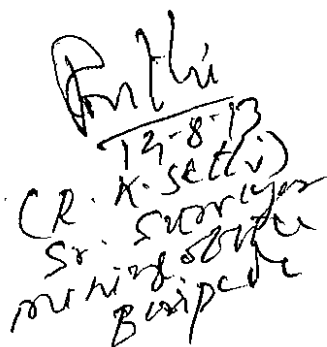 12-8-13
(R. K. Sethi)
Sr. Surveyor
mining office
Baripada